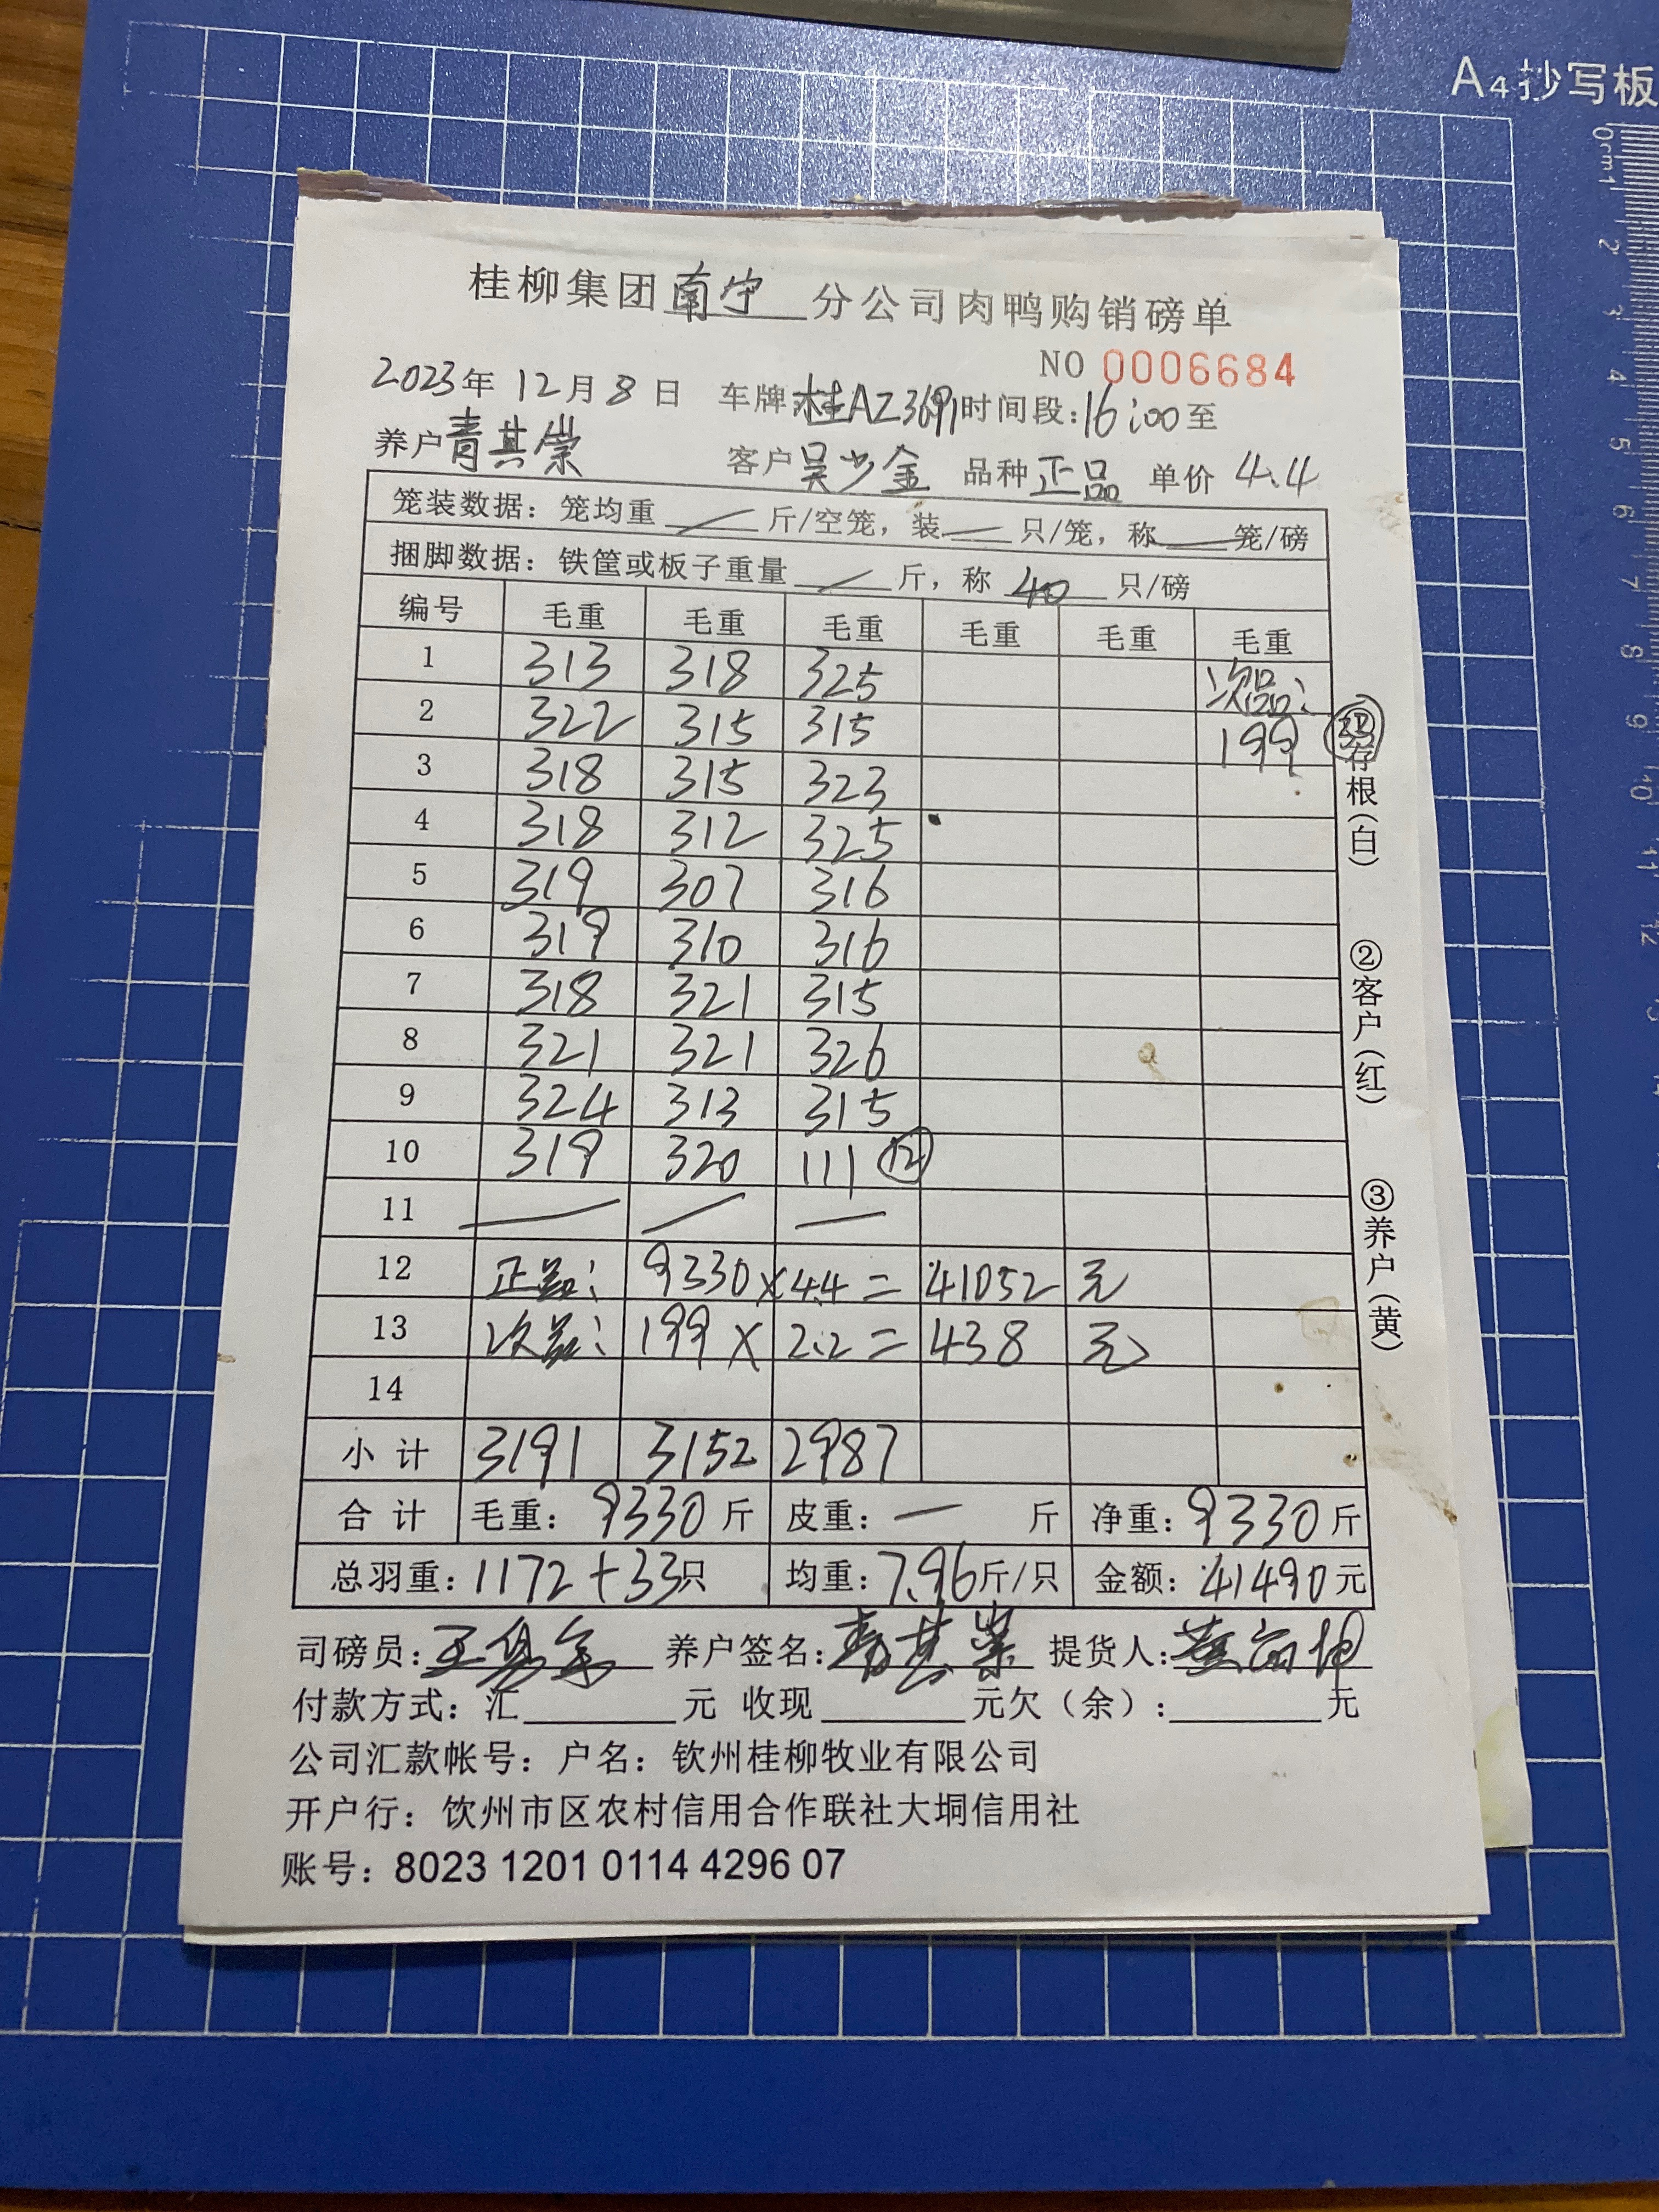 A4抄写板
0cm1 2 3 4 5 6 7 8 9 10 11 12
桂柳集团南宁分公司肉鸭购销磅单
NO 0006684
2023年 12月 8日 车牌桂AZ3691时间段:16:00至
养户青其崇 客户吴少金 品种正品 单价 4.4
笼装数据：笼均重 / 斤/空笼，装 — 只/笼，称 — 笼/磅
捆脚数据：铁筐或板子重量 / 斤，称 40 只/磅
编号 毛重 毛重 毛重 毛重 毛重 毛重
1 313 318 325 次品:
2 322 315 315 199 33
3 318 315 323
4 318 312 325
5 319 307 316
6 319 310 316
7 318 321 315
8 321 321 326
9 324 313 315
10 319 320 111 12
11 — — —
12 正品: 9330×4.4=41052 元
13 次品: 199×2.2=438 元
14
小计 3191 3152 2987
合计 毛重: 9330斤 皮重: — 斤 净重: 9330斤
总羽重: 1172+33只 均重: 7.96斤/只 金额: 41490元
存根(白)
②客户(红)
③养户(黄)
司磅员: 养户签名:青其崇 提货人:
付款方式: 汇 元 收现 元欠(余): 元
公司汇款帐号: 户名: 钦州桂柳牧业有限公司
开户行: 钦州市区农村信用合作联社大垌信用社
账号: 8023 1201 0114 4296 07